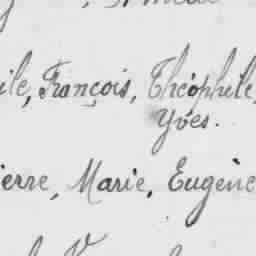 ile, François, Théophile,
Yves.
ierre, Marie, Eugène